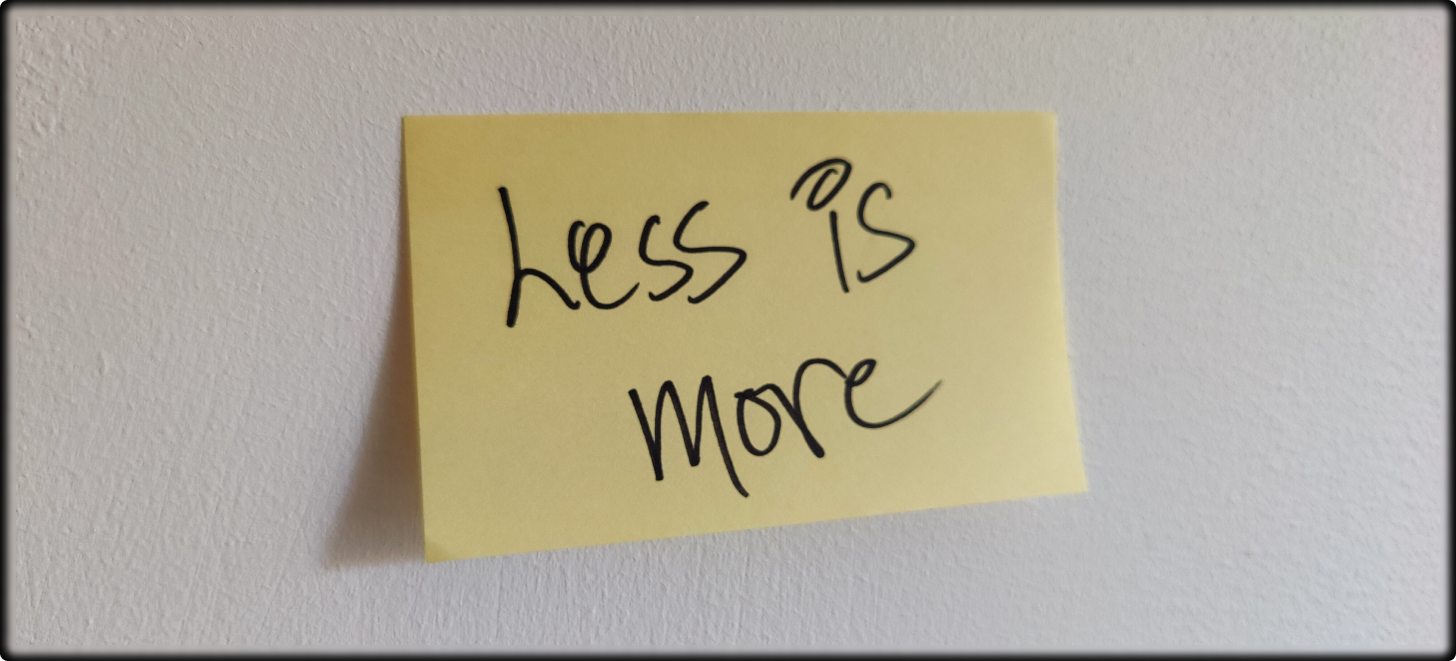 Less is
more